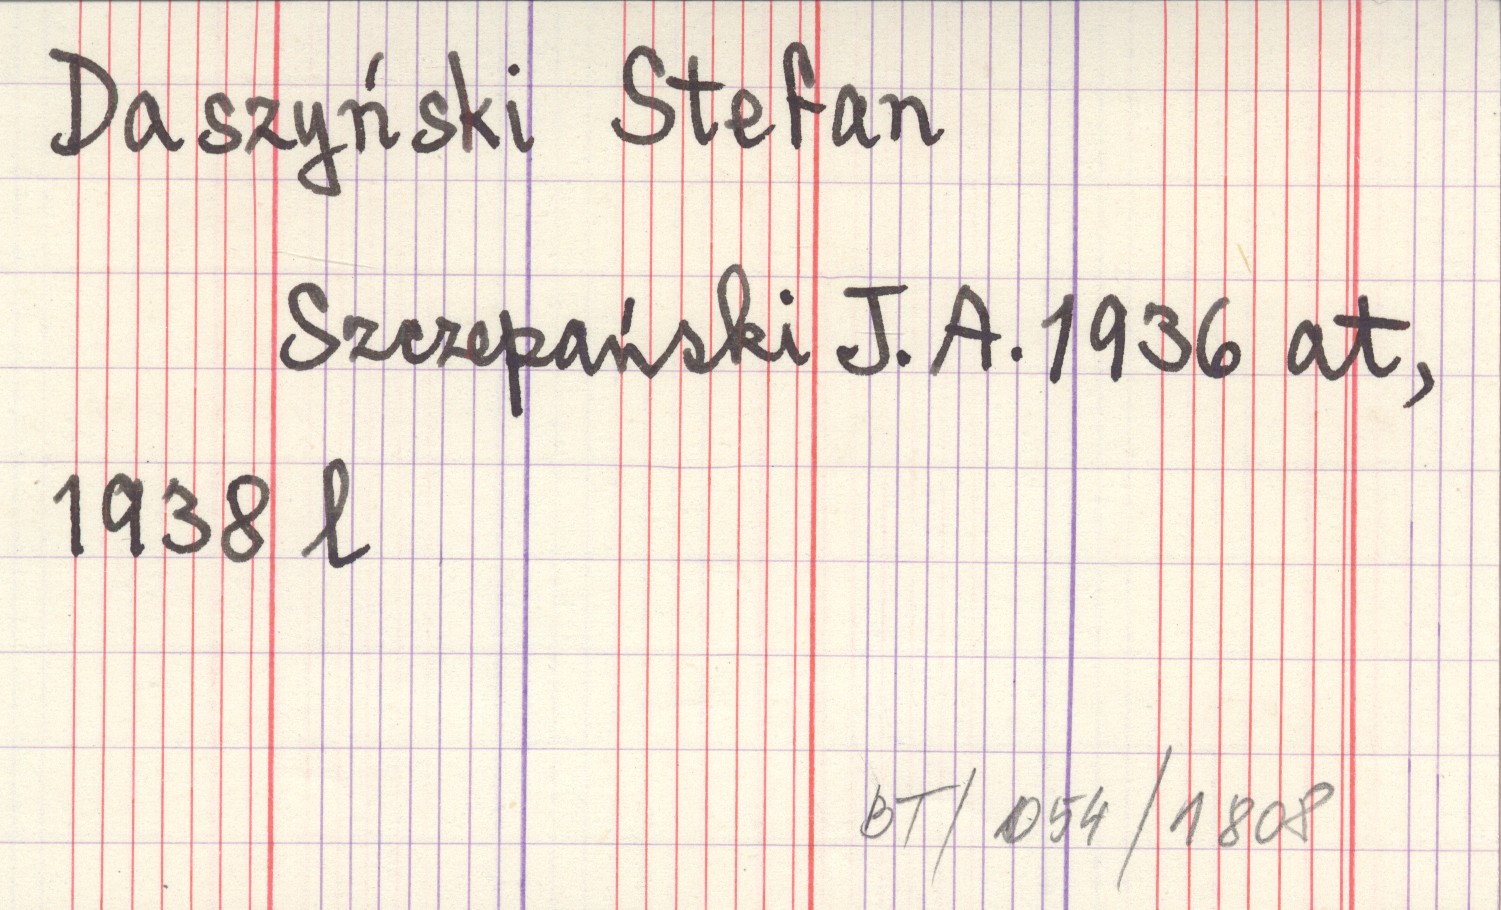 Daszyński Stefan
Szczepański J. A. 1936 at,
1938 l
BT/054/1808